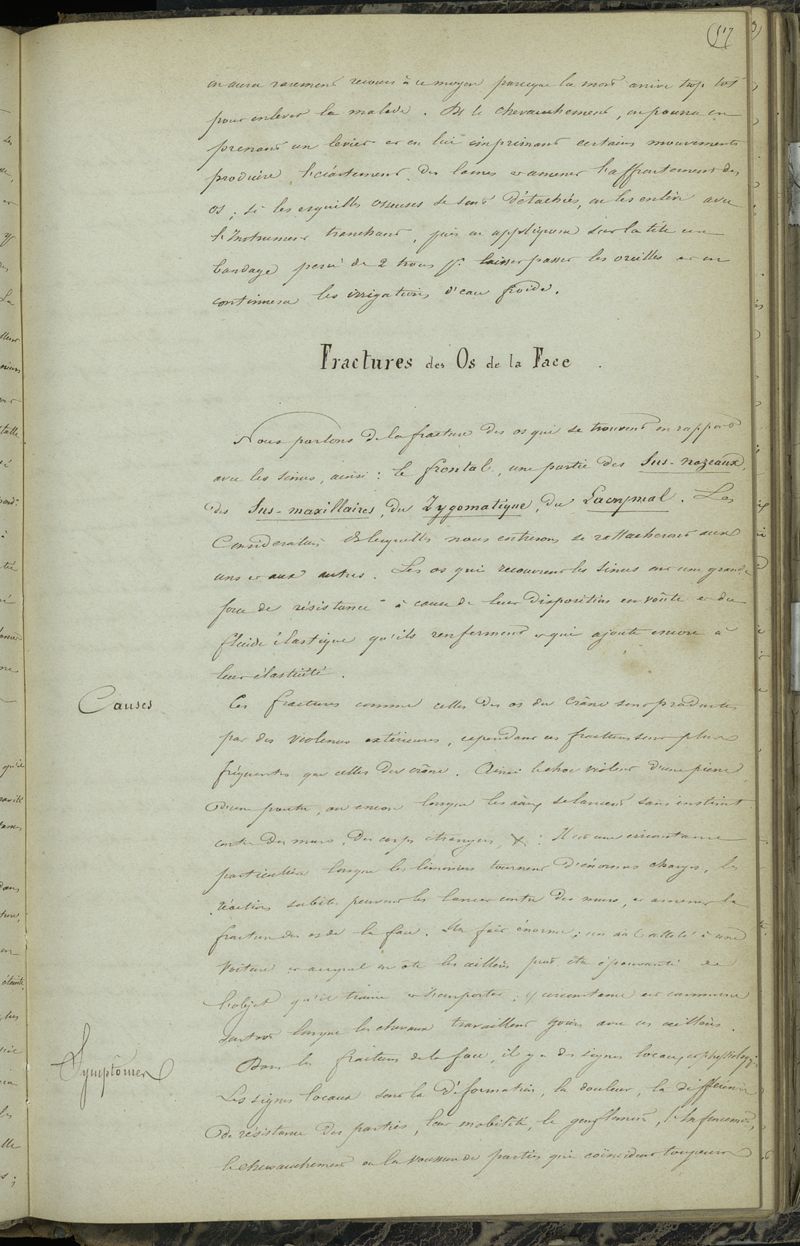 117
on aura rarement recours à ce moyen parceque la mort arrive trop tôt
pour enlever la malade. Ds le chevauchement, on pourra en
prenant un levier et en lui imprimant certains mouvements
produire l'écartement des lames et amener l'affrontement des
os; si les esquilles osseuses se sont détachées, on les enlève avec
l'instrument tranchant, puis on appliquera sur la tête un
bandage percé de 2 trous pr laisser passer les oreilles et on
continuera les irrigations d'eau froide.
Fractures des Os de la Face.
Nous parlons de la fracture des os qui se trouvent en rapport
avec les sinus, ainsi: le frontal, une partie des Sus-nazeaux,
des Sus-maxillaires, du Zygomatique, du Lacrymal. Les
Considérations ds lesquelles nous entrerons se rattacheront aux
uns et aux autres. Les os qui recouvrent les sinus ont une grande
force de résistance à cause de leur disposition en voûte et du
fluide élastique qu'ils renferment et qui ajoute encore à
leur élasticité.
Causes
Ces fractures comme celles des os du crâne sont produites
par des violences extérieures, cependant ces fractures sont plus
fréquentes que celles du crâne. Ainsi le choc violent d'une pierre,
d'une poutre, ou encore lorsque les se lancent sans instinct
contre des murs, des corps étrangers, : Il est une circonstance
particulière lorsque les limoniers tournent d'énormes charges, la
réaction subite peuvent les lancer contre des murs, et amener la
fracture des os de la face. Un fait énorme; un attelé à une
voiture et auquel on ôte les œillères peut être épouvanté de
l'objet qu'il traine et s'emporter; circonstance est commune
surtout lorsque les chevaux travaillent avec ces œillères.
Symptômes
Dans les fractures de la face, il y a des signes locaux, et physiolog.
Les signes locaux sont la déformation, la douleur, la différence
de résistance des parties, leur mobilité, le gonflement, l'enfoncement,
le chevauchement ou la de parties qui coïncident toujours